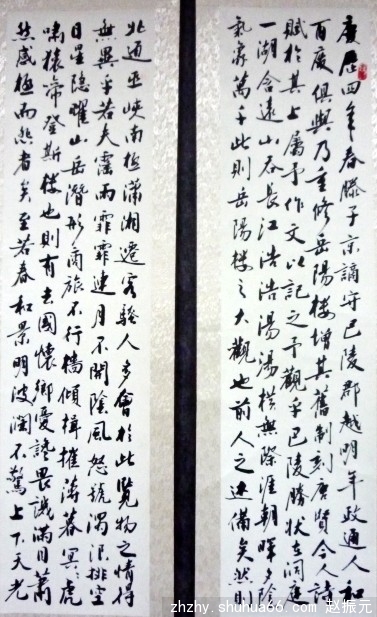 慶歷四年春滕子京謫守巴陵郡越明年政通人和
百廢俱興乃重修岳陽樓增其舊制刻唐賢今人詩
賦於其上屬予作文以記之予觀乎巴陵勝狀在洞庭
一湖含遠山吞長江浩浩湯湯橫無際涯朝暉夕陰
氣象萬千此則岳陽樓之大觀也前人之述備矣然則
北通巫峽南極瀟湘遷客騷人多會於此覽物之情得
無異乎若夫霪雨霏霏連月不開陰風怒號濁浪排空
日星隱曜山岳潛形商旅不行檣傾楫摧薄暮冥〻虎
嘯猿啼登斯樓也則有去國懷鄉憂讒畏譏滿目蕭
然感極而悲者矣至若春和景明波瀾不驚上下天光
zhzhy.shuhua66.com 赵振元